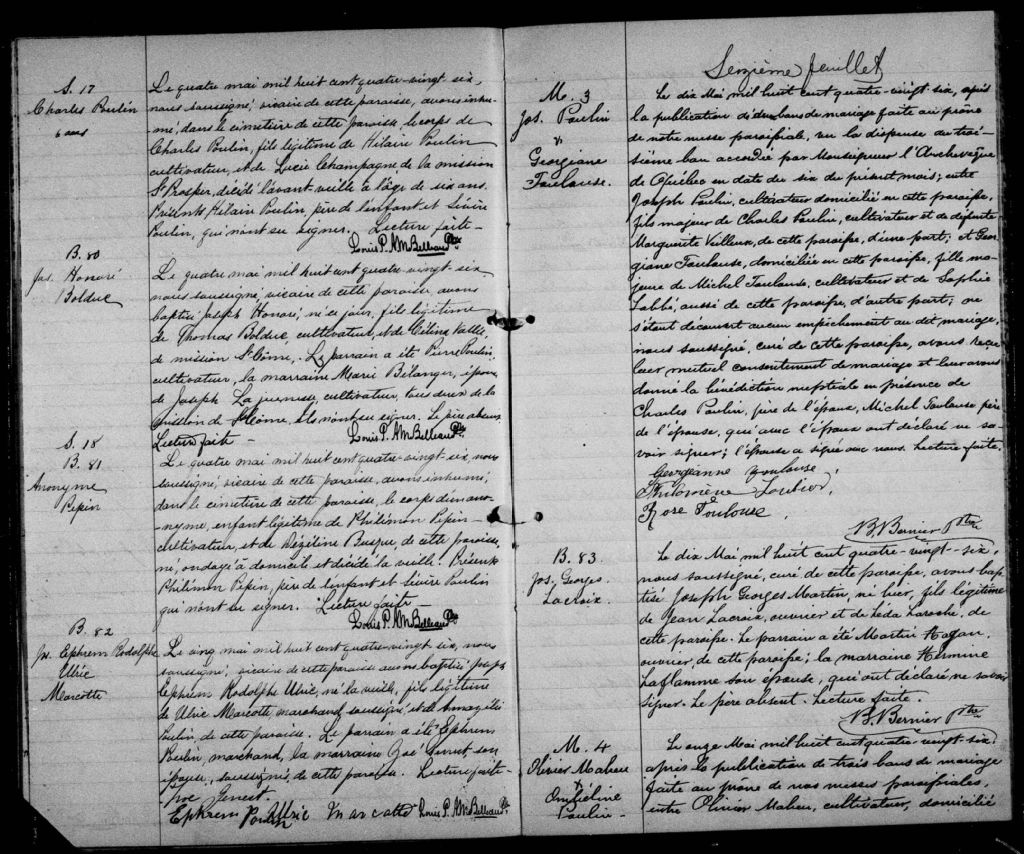 S. 17
Charles Poulin
6 ans
Le quatre mai mil huit cent quatre-vingt six,
nous soussigné, vicaire de cette paroisse, avons inhu-
mé, dans le cimetière de cette paroisse le corps de
Charles Poulin, fils légitime de Hilaire Poulin
cultivateur, et de Lucie Champagne, de la mission
St Prosper, décédé l'avant-veille à l'âge de six ans.
Présents Hilaire Poulin, père de l'enfant et Sévère
Poulin, qui n'ont su signer. Lecture faite -
Louis P. A. M. Belleau Ptre
B. 80
Jos. Honoré
Bolduc
Le quatre mai mil huit cent quatre-vingt six
nous soussigné, vicaire de cette paroisse, avons
baptisé Joseph Honoré, né ce jour, fils légitime
de Thomas Bolduc, cultivateur, et de Célina Vallée,
de mission St Côme. Le parrain a été Pierre Poulin,
cultivateur, la marraine Marie Bélanger, épouse
de Joseph La jeunesse, cultivateur, tous deux de la
mission de St Côme, ils n'ont su signer. Le père absent.
Lecture faite -
Louis P. A. M. Belleau Ptre
S. 18
B. 81
Anonyme
Pepin
Le quatre mai mil huit cent quatre-vingt-six, nous
soussigné, vicaire de cette paroisse, avons inhumé,
dans le cimetière de cette paroisse, le corps d'un ano-
nyme, enfant légitime de Philémon Pepin -
cultivateur, et de Dézéline Busque, de cette paroisse,
né, ondoyé à domicile et décédé la veille. Présents
Philémon Pépin, père de l'enfant et Sévère Poulin
qui n'ont su signer. Lecture faite -
Louis P. A. M. Belleau Ptre
B. 82
Jos. Ephrem Rodolphe
Ulric
Marcotte
Le cinq mai mil huit cent quatre-vingt-six, nous
soussigné, vicaire de cette paroisse avons baptisé Joseph
Ephrem Rodolphe Ulric, né la veille, fils légitime
de Ulric Marcotte, marchand, soussigné, et de
Poulin, de cette paroisse. Le parrain a été Ephrem
Poulin, marchand, la marraine Zoé Genest son
épouse, soussignés, de cette paroisse. Lecture faite -
Zoé Genest
Ephrem Poulin Ulric Marcotte Louis P. A. M. Belleau Ptre
Seizième feuillet
M. 3
Jos. Poulin
&
Georgiane
Toulouse.
Le dix Mai mil huit cent quatre-vingt six, après
la publication de deux bans de mariage faite au prône
de notre messe paroissiale, vu la dispense du troi-
sième ban accordée par Monseigneur l'Archevêque
de Québec en date du six du présent mois; entre
Joseph Poulin, cultivateur domicilié en cette paroisse,
fils majeur de Charles Poulin, cultivateur et de défunte
Marguerite Veilleux, de cette paroisse, d'une part; et Geor-
giane Toulouse, domiciliée en cette paroisse, fille ma-
jeure de Michel Toulouse, cultivateur et de Sophie
Labbé, aussi de cette paroisse, d'autre part; ne
s'étant découvert aucun empêchement au dit mariage,
nous soussigné, curé de cette paroisse, avons reçu
leur mutuel consentement de mariage et leur avons
donné la bénédiction nuptiale en présence de
Charles Poulin, père de l'époux, Michel Toulouse père
de l'épouse, qui avec l'époux ont déclaré ne sa-
voir signer; l'épouse a signé avec nous. Lecture faite.
Georgeanne Toulouse
Philomène Loubier,
Rose Toulouse
B. Bernier Ptre
B. 83
Jos. Georges
Lacroix.
Le dix Mai mil huit cent quatre-vingt-six,
nous soussigné, curé de cette paroisse, avons bap-
tisé Joseph Georges Martin, né hier, fils légitime
de Jean Lacroix, ouvrier et de Léda Laroche, de
cette paroisse. Le parrain a été Martin Hagan,
ouvrier, de cette paroisse; la marraine Hermine
Laflamme son épouse, qui ont déclaré ne savoir
signer. Le père absent. Lecture faite.
B. Bernier Ptre
M. 4
Olivier Maheu
&
Poulin -
Le onze Mai mil huit cent quatre-vingt-six,
après la publication de trois bans de mariage
faite au prône de nos messes paroissiales,
entre Olivier Maheu, cultivateur, domicilié